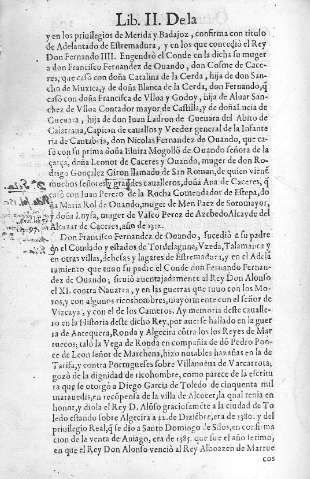 Lib. II. De la
y en los priuilegios de Merida y Badajoz, confirma con titulo
de Adelantado de Estremadura, y en los que concediò el Rey
Don Fernando IIII. Engendrò el Conde en la dicha su muger
a don Francisco Fernandez de Ouando, don Cosme de Cace-
res, que casò con doña Catalina de la Cerda, hija de don San-
cho de Muxica, y de doña Blanca de la Cerda, don Fernando, q̃
casò con doña Francisca de Vlloa y Godoy, hija de Aluar San-
chez de Vlloa Contador mayor de Castilla, y de doña Lucia de
Gueuara, hija de don Iuan Ladron de Gueuara del Abito de
Calatraua, Capitan de cauallos y Veedor general de la Infante
ria de Cantabria, don Nicolas Fernandez de Ouando, que ca-
sò con su prima doña Eluira Mogollò de Ouando señora de la
çarça, doña Leonor de Caceres y Ouando, muger de don Ro-
drigo Gonçalez Giron llamado de San Roman, de quien viene
muchos señores y grandes caualleros, doña Ana de Caceres, q̃
casò con Iuan Perero de la Rocha Comendador de Estepa, do
ña Maria Rol de Ouando, muger de Men Paez de Sotomayor,
y doña Loysa, muger de Vasco Perez de Azebedo Alcayde del
Alcazar de Caceres, año, de 1312.
Don Francisco Fernandez de Ouando, sucediò a su padre
en el Condado y estados de Tordelaguna, Vzeda, Talamanca y
en otras villas, dehesas y lugares de Estremadura, y en el Adela
tamiento que tuuo su padre el Conde don Fernando Fernan-
dez de Ouando, siruiò auentajadamente al Rey Don Alonso
el XI. contra Nauarra, y en las guerras que tuuo con los Mo-
ros, y con algunos ricoshombres, mayormente con el señor de
Vizcaya, y con el de los Cameros. Ay memoria deste caualle-
ro en la Historia deste dicho Rey, por auerse hallado en la guer
ra de Antequera, Ronda y Algecira cõtra los los Reyes de Mar
ruecos; talò la Vega de Ronda en compañia de dõ Pedro Pon-
ce de Leon señor de Marchena, hizo notables hazañas en la de
Tarifa, y contra Portugueses sobre Villanueua de Varcarrota,
gozò de la dignidad de ricohombre, como parece de la escritu
ra que se otorgò a Diego Garcia de Toledo de cinquenta mil
marauedis, en recõpensa de la villa de Alcocer, la qual tenia en
honor, y diola el Rey D. Alõso graciosamẽte a la ciudad de To
ledo estando sobre Algecira a 22. de Diziẽbre, era de 1380. y del
priuilegio Real, q̃ se dio a Santo Domingo de Silos, en confirma
cion de la venta de Aniago, era de 1385. que fue el año septimo,
en que el Rey Don Alonso venciò al Alboazen de Marrue
cos